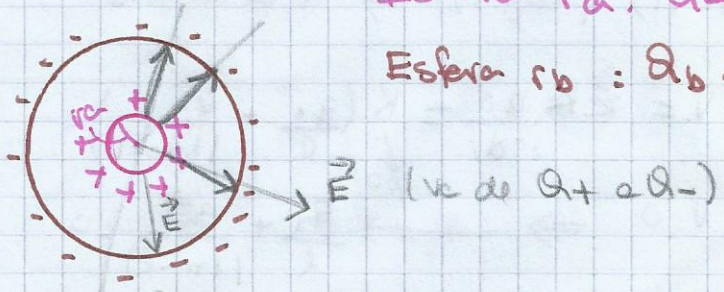 Esfera rb : Qb
ra
E
E (va de Q+ a Q-)